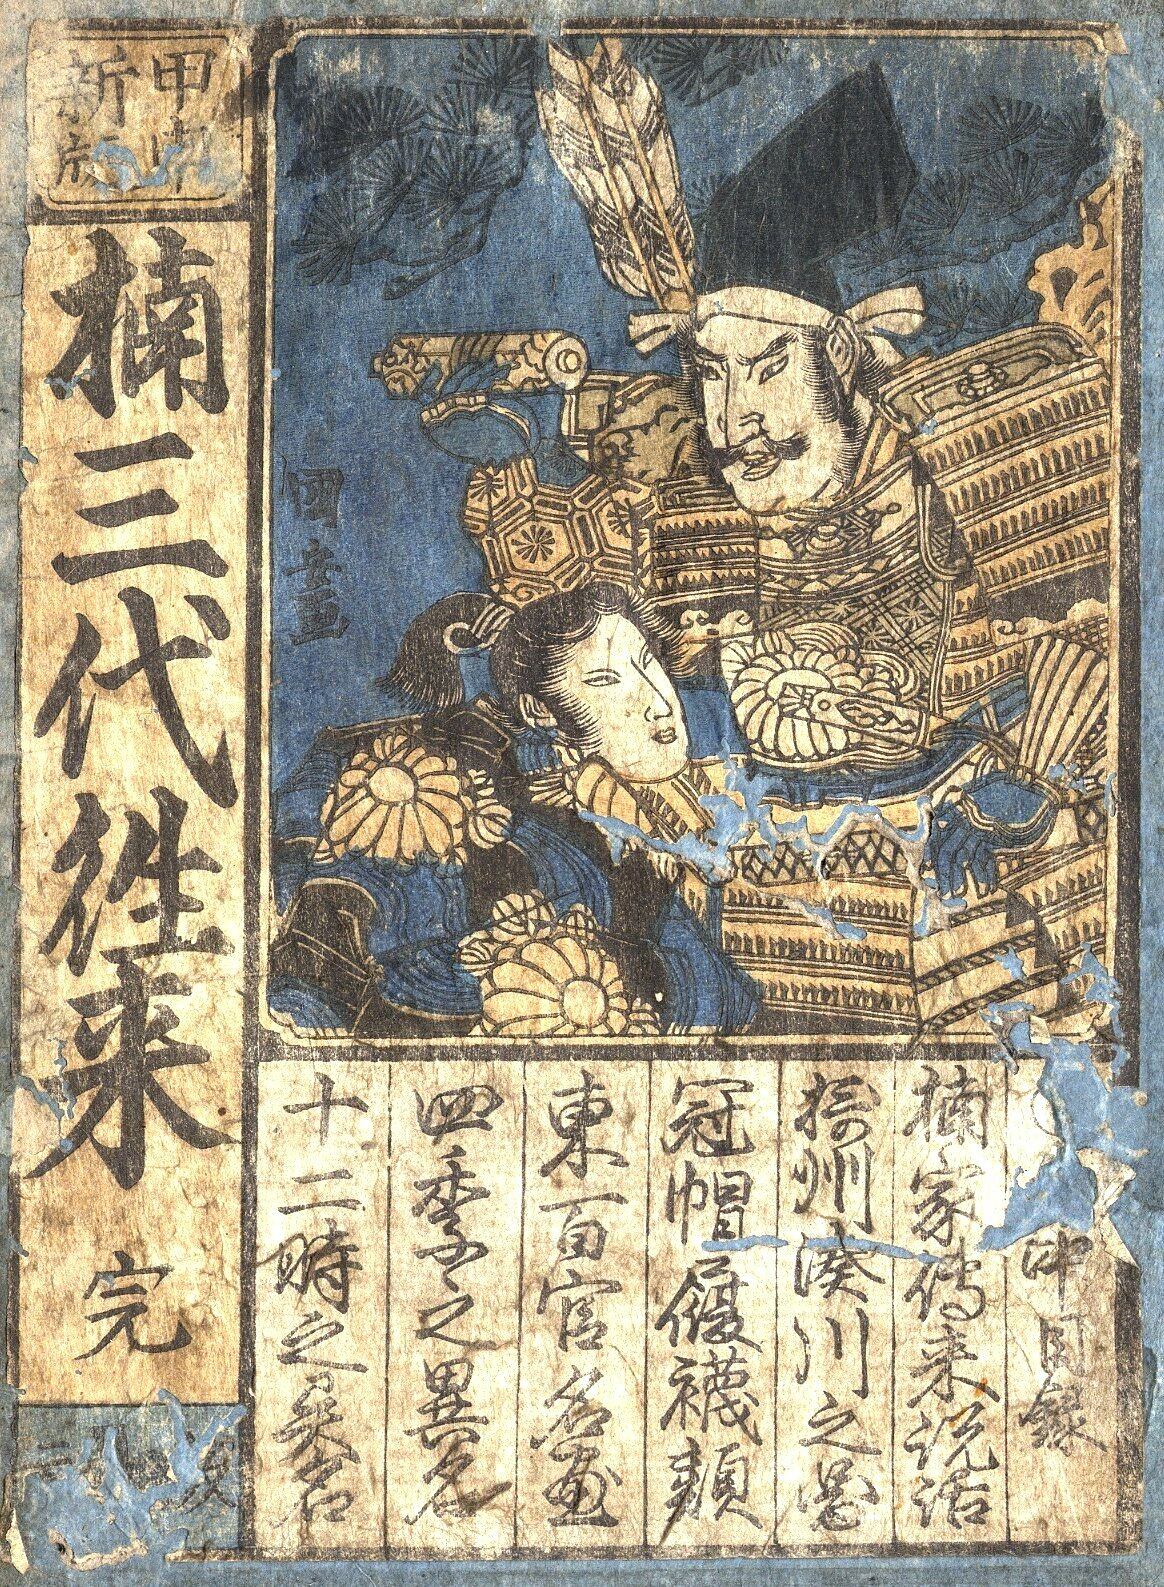 甲
新
楠三代往来
完
国直画
中目録
楠家傳来説話
湊川之圖
冠帽履襪類
東百官名盡
四季之異名
十二時之異名